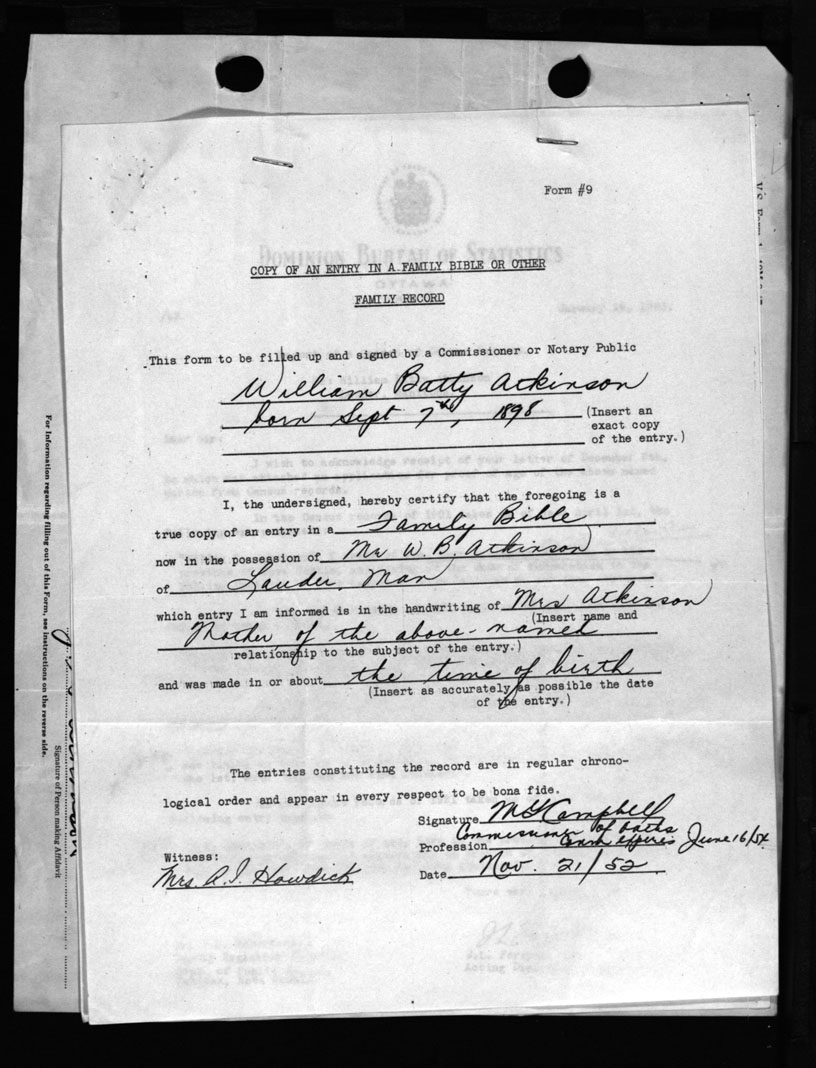 Form #9
DOMINION BUREAU OF STATISTICS
OTTAWA
COPY OF AN ENTRY IN A FAMILY BIBLE OR OTHER
FAMILY RECORD
This form to be filled up and signed by a Commissioner or Notary Public
William Batty Atkinson
born Sept 7th, 1898 (Insert an
exact copy
of the entry.)
I, the undersigned, hereby certify that the foregoing is a
true copy of an entry in a Family Bible
now in the possession of Mr W. B. Atkinson
of Lauder, Man
which entry I am informed is in the handwriting of Mrs Atkinson
(Insert name and
Mother of the above-named
relationship to the subject of the entry.)
and was made in or about the time of birth
(Insert as accurately as possible the date
of the entry.)
The entries constituting the record are in regular chrono-
logical order and appear in every respect to be bona fide.
Signature Campbell
Commissioner of oaths
Profession Comm expires June 16/54
Witness:
Mrs. A. I. Howdick
Date Nov. 21/52
For Information regarding filling out of this Form, see instructions on the reverse side.
Signature of Person making Affidavit